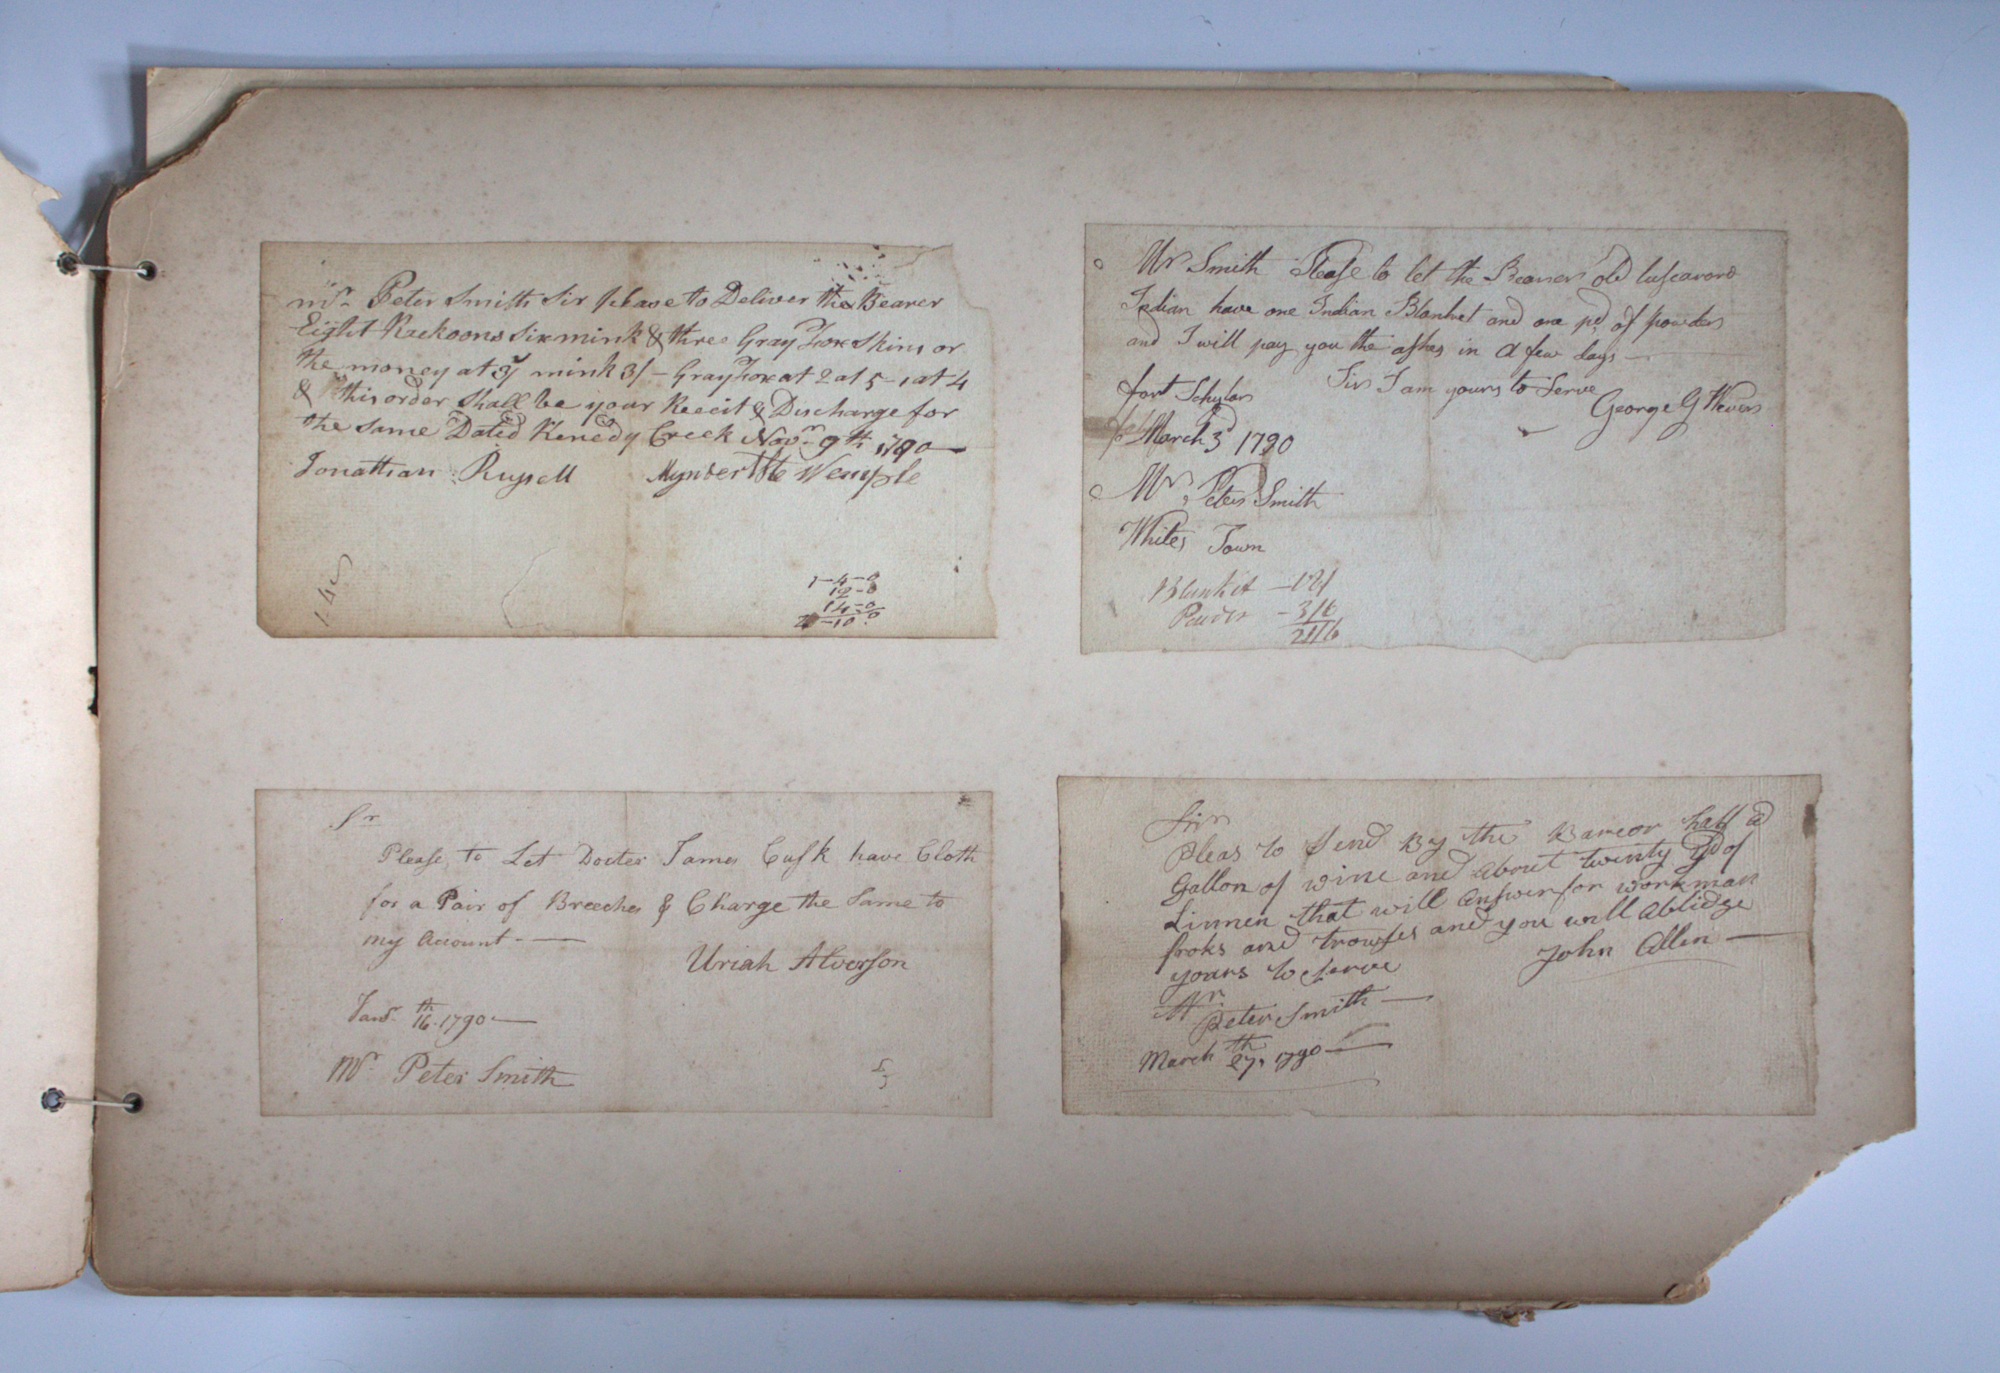 Mr. Peter Smith Sir please to Deliver the Bearer
Eight Rackoons Six mink & three Gray Fox Skins or
the money at 3/ mink 3/ - Gray Fox at 2 at 5 - 1 at 4
& this order Shall be your Receit & Discharge for
the same Dated Kenedy Creek Novr. 9th 1790
Jonathan Russell Myndert Wemple
1-4-0
18-0
14-0
2-10-0
Mr Smith Please to let the Bearer old tuscarora
Indian have one Indian Blanket and one pd of powder
and I will pay you the ashes in a few days
Sir I am yours to Serve
fort Schyler
George G Wevers
March 3d 1790
Mr Peter Smith
Whites Town
Blanket - 18/
Powder - 3/6
21/6
Sr
Please to Let Docter James Cusk have Cloth
for a Pair of Breeches & Charge the Same to
my account.
Uriah Alverson
Janr. 16th 1790
Mr. Peter Smith
Sir
Pleas to Send By the Bareor half a
Gallon of wine and about twenty yd of
Linnen that will Answer for workman
froks and trowses and you will Ablidge
yours to Serve
John Allen
Mr
Peter Smith
March 27th 1790